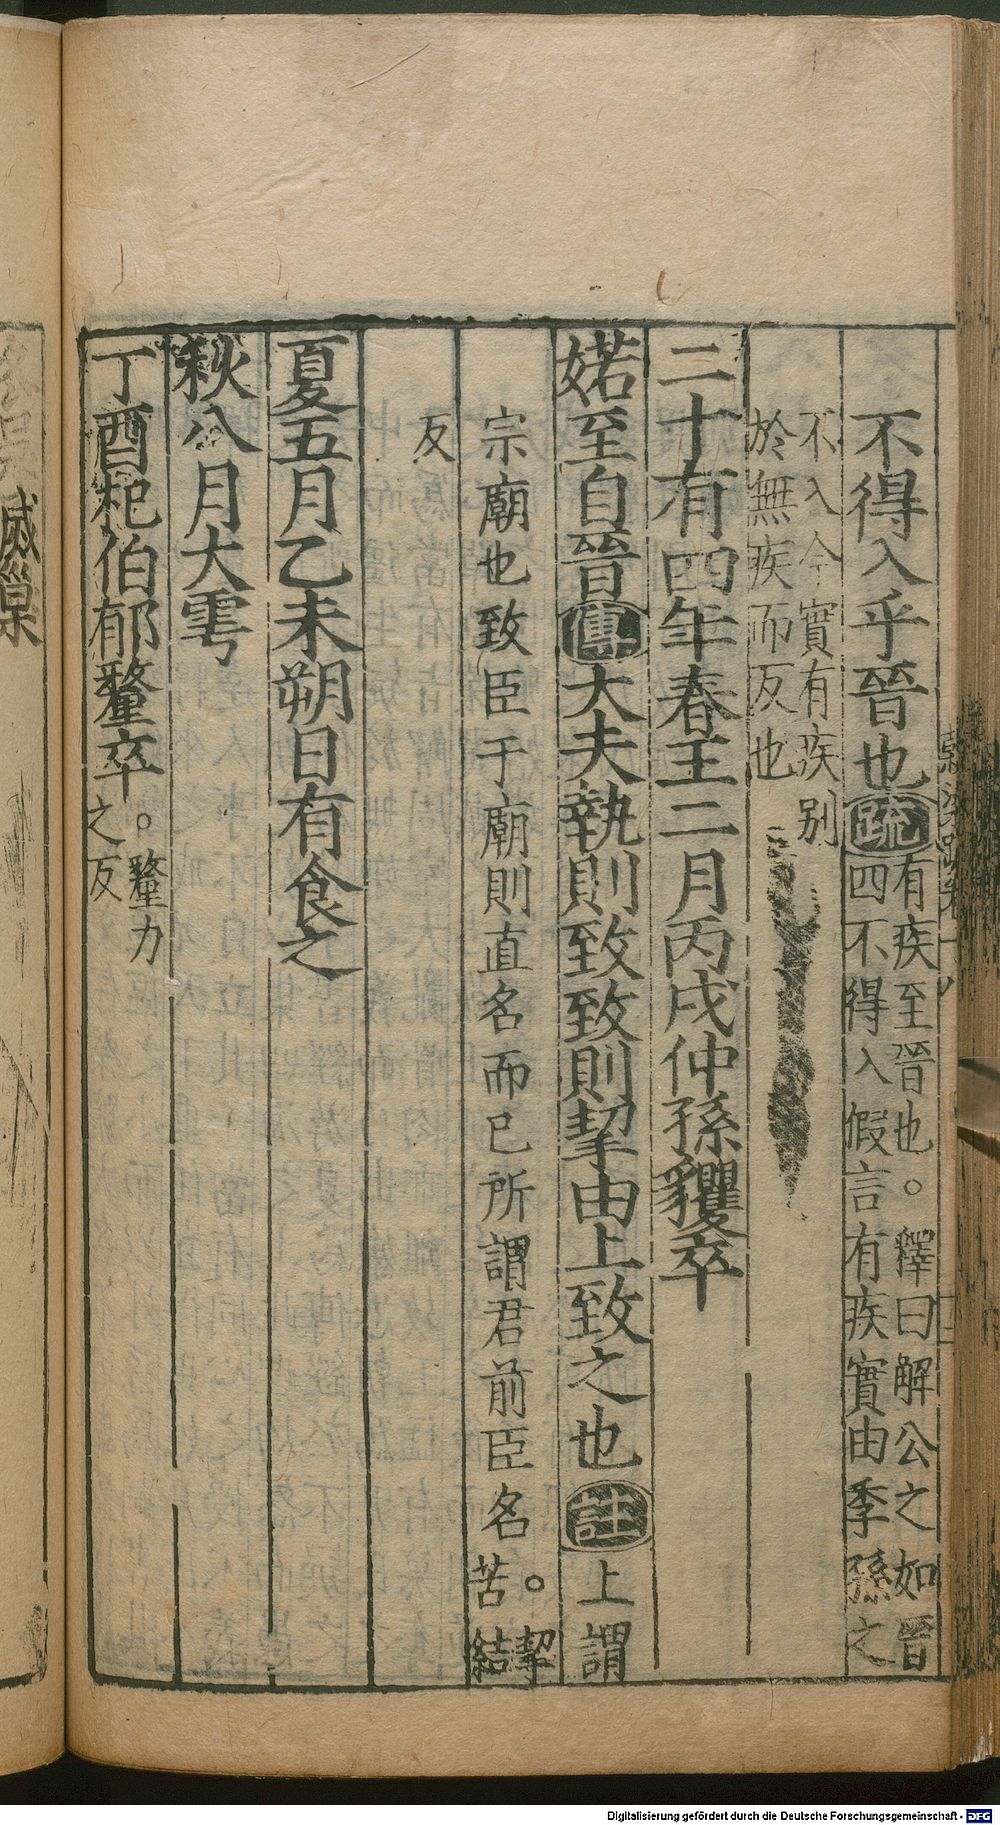 不得入乎晉也疏有疾至晉也○釋曰解公之如晉
四不得入假言有疾實由季孫之
不入今實有疾别
於無疾而反也
二十有四年春王二月丙戌仲孫貜卒
婼至自晉傳大夫執則致致則挈由上致之也註上謂
宗廟也致臣于廟則直名而已所謂君前臣名○挈
苦結
反
夏五月乙未朔日有食之
秋八月大雩
丁酉杞伯郁釐卒○釐力
之反
Digitalisierung gefördert durch die Deutsche Forschungsgemeinschaft - DFG